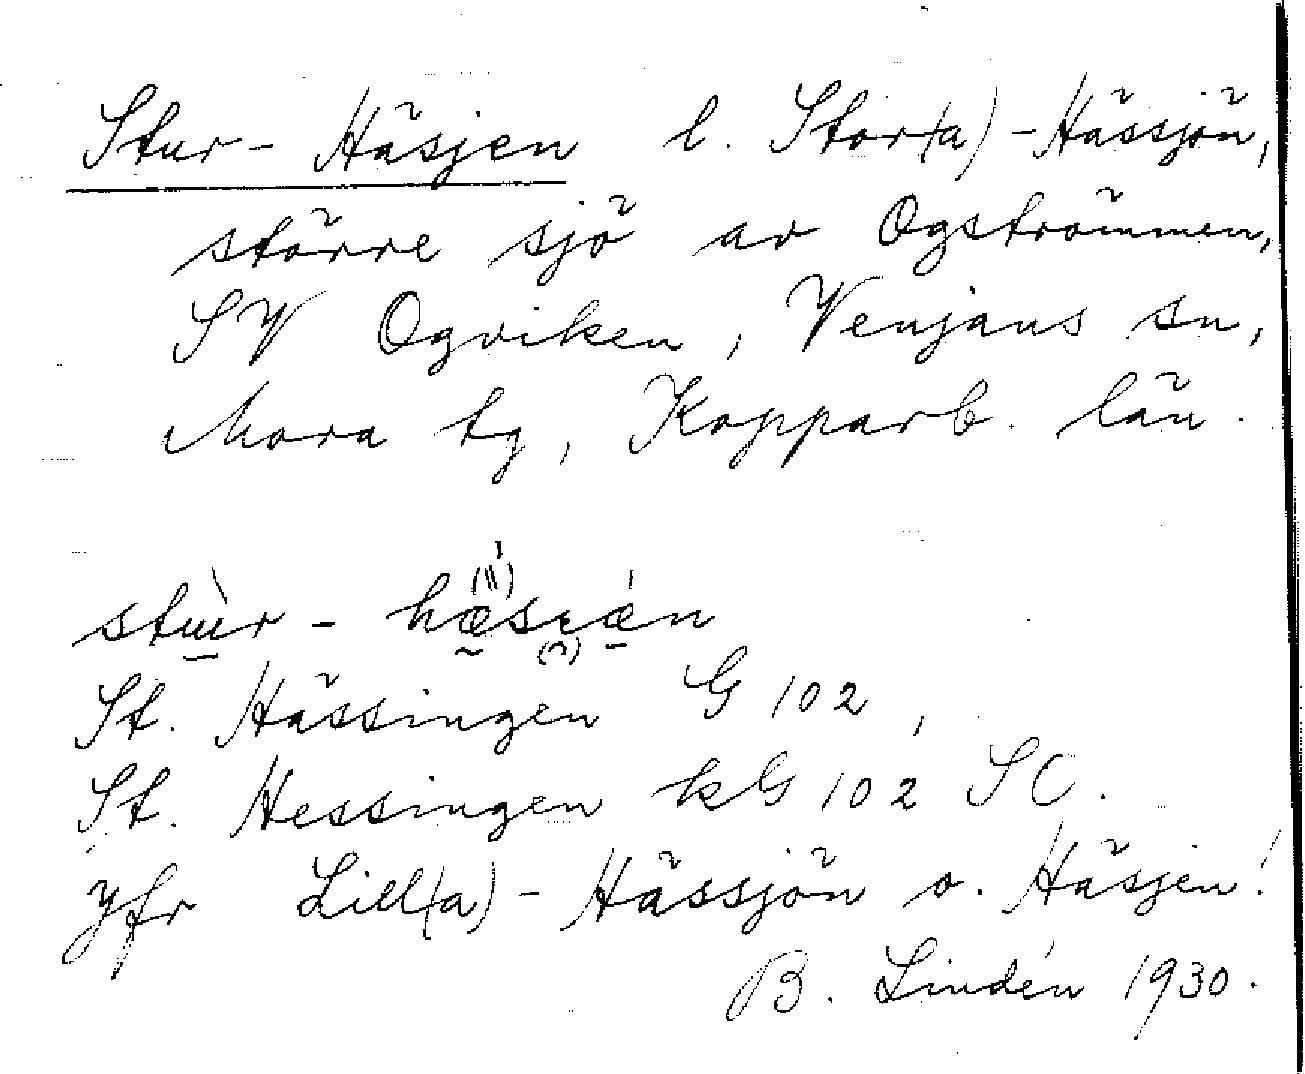 Stur-Häsjen l. Stor(a)-Hässjön,
större sjö av Ogströmmen,
SV Ogviken, Venjans sn,
Mora tg, Kopparb. län.
St. Hässingen G 102,
St. Hessingen kG 102 SO.
Jfr Lill(a)-Hässjön o. Häsjen!
B. Lindén 1930.